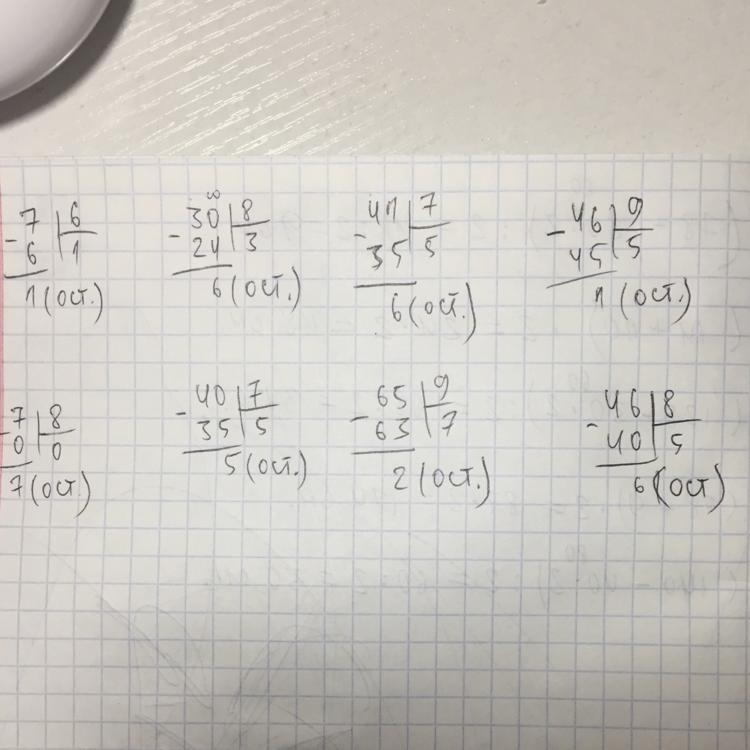 7 6 30 8 41 7 46 9
- 6 1 - 24 3 - 35 5 - 45 5
1 (ост.) 6 (ост.) 6 (ост.) 1 (ост.)
7 8 40 7 65 9 46 8
- 0 0 - 35 5 - 63 7 - 40 5
7 (ост) 5 (ост.) 2 (ост.) 6 (ост)